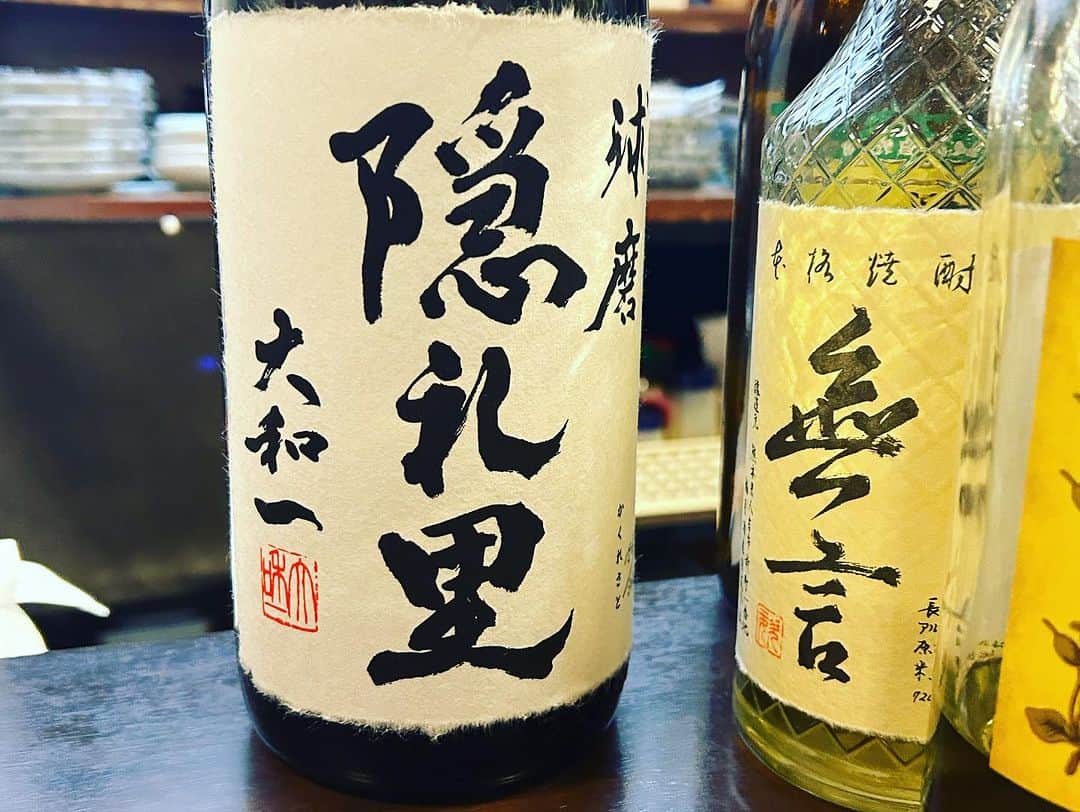 球磨
隠礼里
かくれざと
大和一
本格焼酎
無言
長期原米